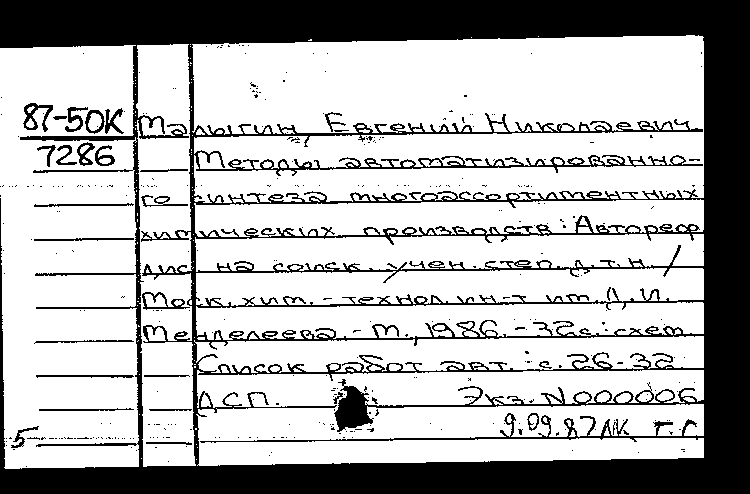 87-50К Малыгин, Евгений Николаевич.
7286 Методы автоматизированно-
го синтеза многоассортиментных
химических производств : Автореф
дис. на соиск. учен. степ. д.т.н /
Моск. хим. - технол. ин-т им Д.И.
Менделеева. - М., 1986. - 32с. : схем
Список работ авт. : с. 26-32
ДСП. Экз. N000006
5 9.09.87 г.г.